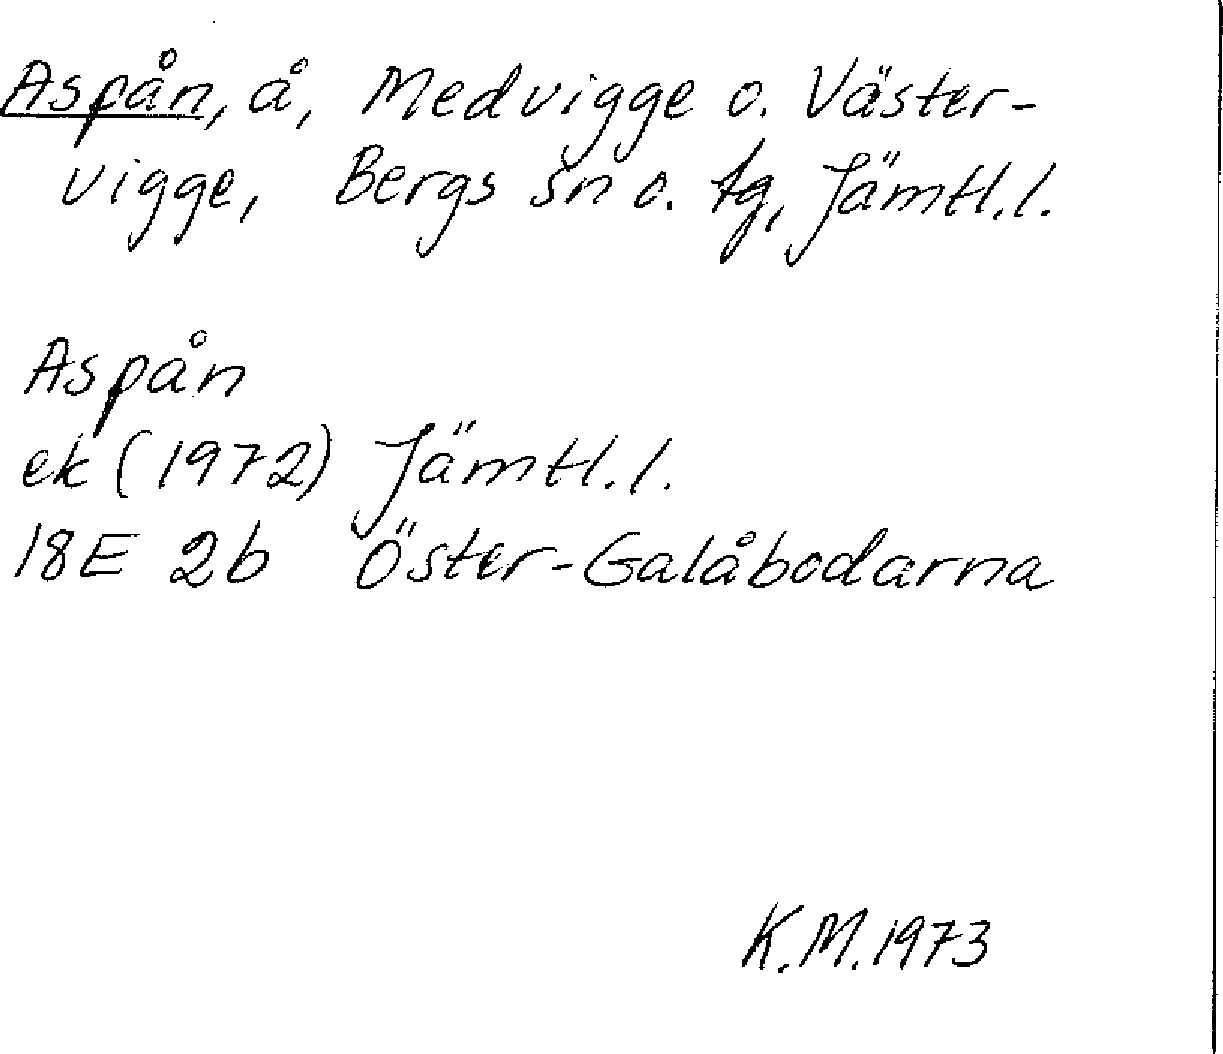 Aspån, å, Medvigge o. Väster-
vigge, Bergs sn o. tg, Jämtl.l.
Aspån
ek (1972) Jämtl.l.
18E 2b Öster-Galåbodarna
K.M.1973